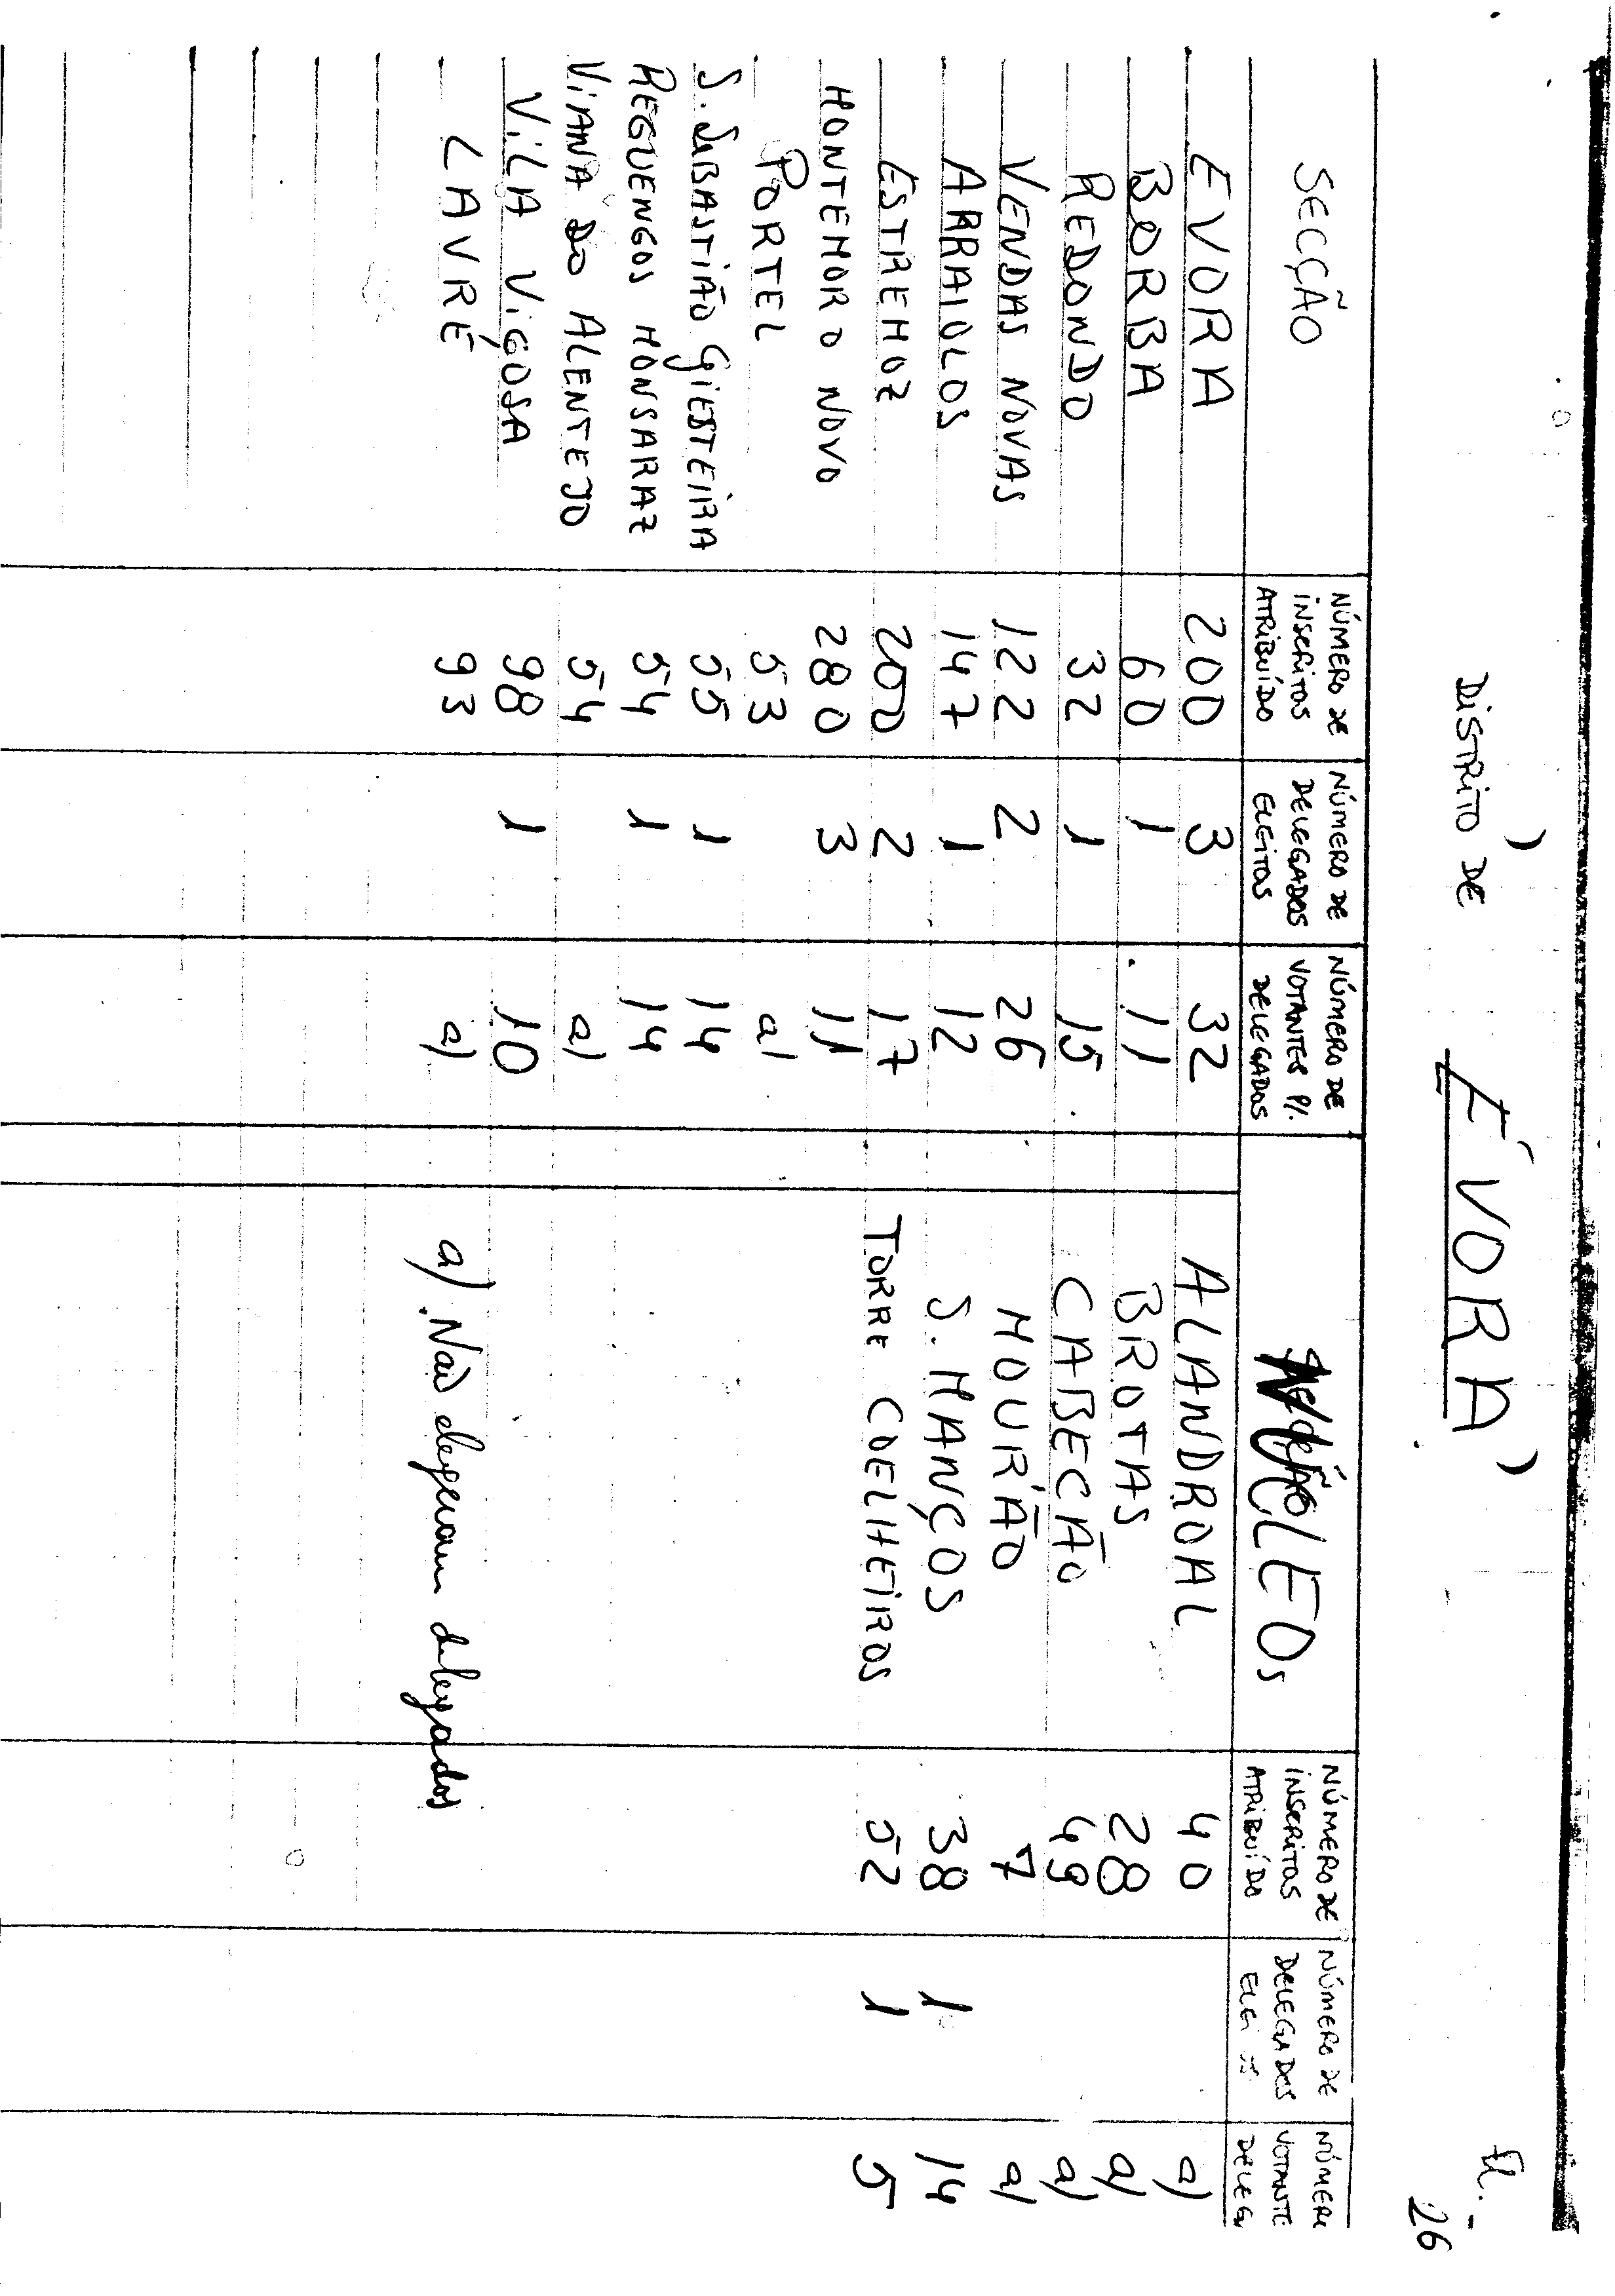 Fl. - 26
DISTRITO DE ÉVORA
SECÇÃO NÚMERO DE INSCRITOS ATRIBUÍDO NÚMERO DE DELEGADOS ELEITOS NÚMERO DE VOTANTES P/. DELEGADOS NÚCLEOS NÚMERO DE INSCRITOS ATRIBUÍDO NÚMERO DE DELEGADOS NÚMER VOTANTE DELEG
EVORA 200 3 32 ALANDROAL 40 a)
BORBA 60 1 11 BROTAS 28 a)
REDONDO 32 1 15 CABECÃO 49 a)
VENDAS NOVAS 122 2 26 MOURÃO 7 a)
ARRAIOLOS 147 1 12 S. MANÇOS 38 1 14
ESTREMOZ 200 2 17 TORRE COELHEIROS 52 1 5
MONTEMOR O NOVO 280 3 11
PORTEL 53 a)
S. SEBASTIÃO GIESTEIRA 55 1 14
REGUENGOS MONSARAZ 54 1 14
VIANA DO ALENTEJO 54 a)
VILA VIÇOSA 98 1 10
LAVRE 93 a) a) Não elegeram delegados